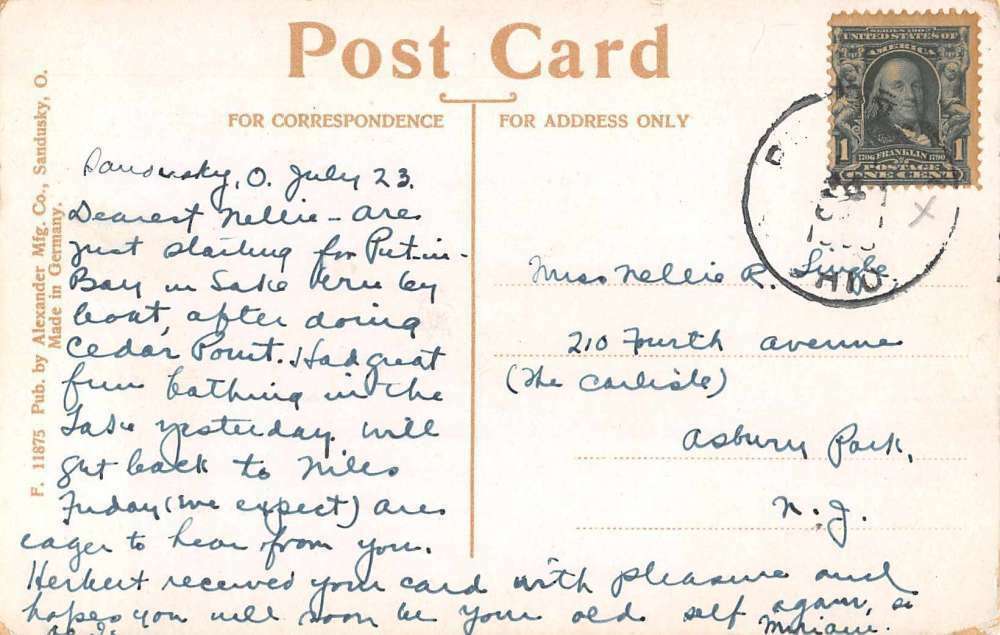 Post Card
FOR CORRESPONDENCE
FOR ADDRESS ONLY
F. 11875 Pub. by Alexander Mfg. Co., Sandusky, O.
Made in Germany.
SERIES 1902
UNITED STATES OF
AMERICA
1706 FRANKLIN 1790
1 POSTAGE 1
ONE CENT
OHIO
Sandusky, O. July 23.
Dearest Nellie - are
just starting for Put-in-
Bay in Lake Erie by
boat, after doing
Cedar Point. Had great
fun bathing in the
Lake yesterday. Will
get back to Niles
Friday (we expect) are
eager to hear from you.
Herbert received your card with pleasure and
hopes you will soon be your old self again,
Miriam.
Miss Nellie R.
210 Fourth Avenue
(The Carlisle)
Asbury Park,
N. J.